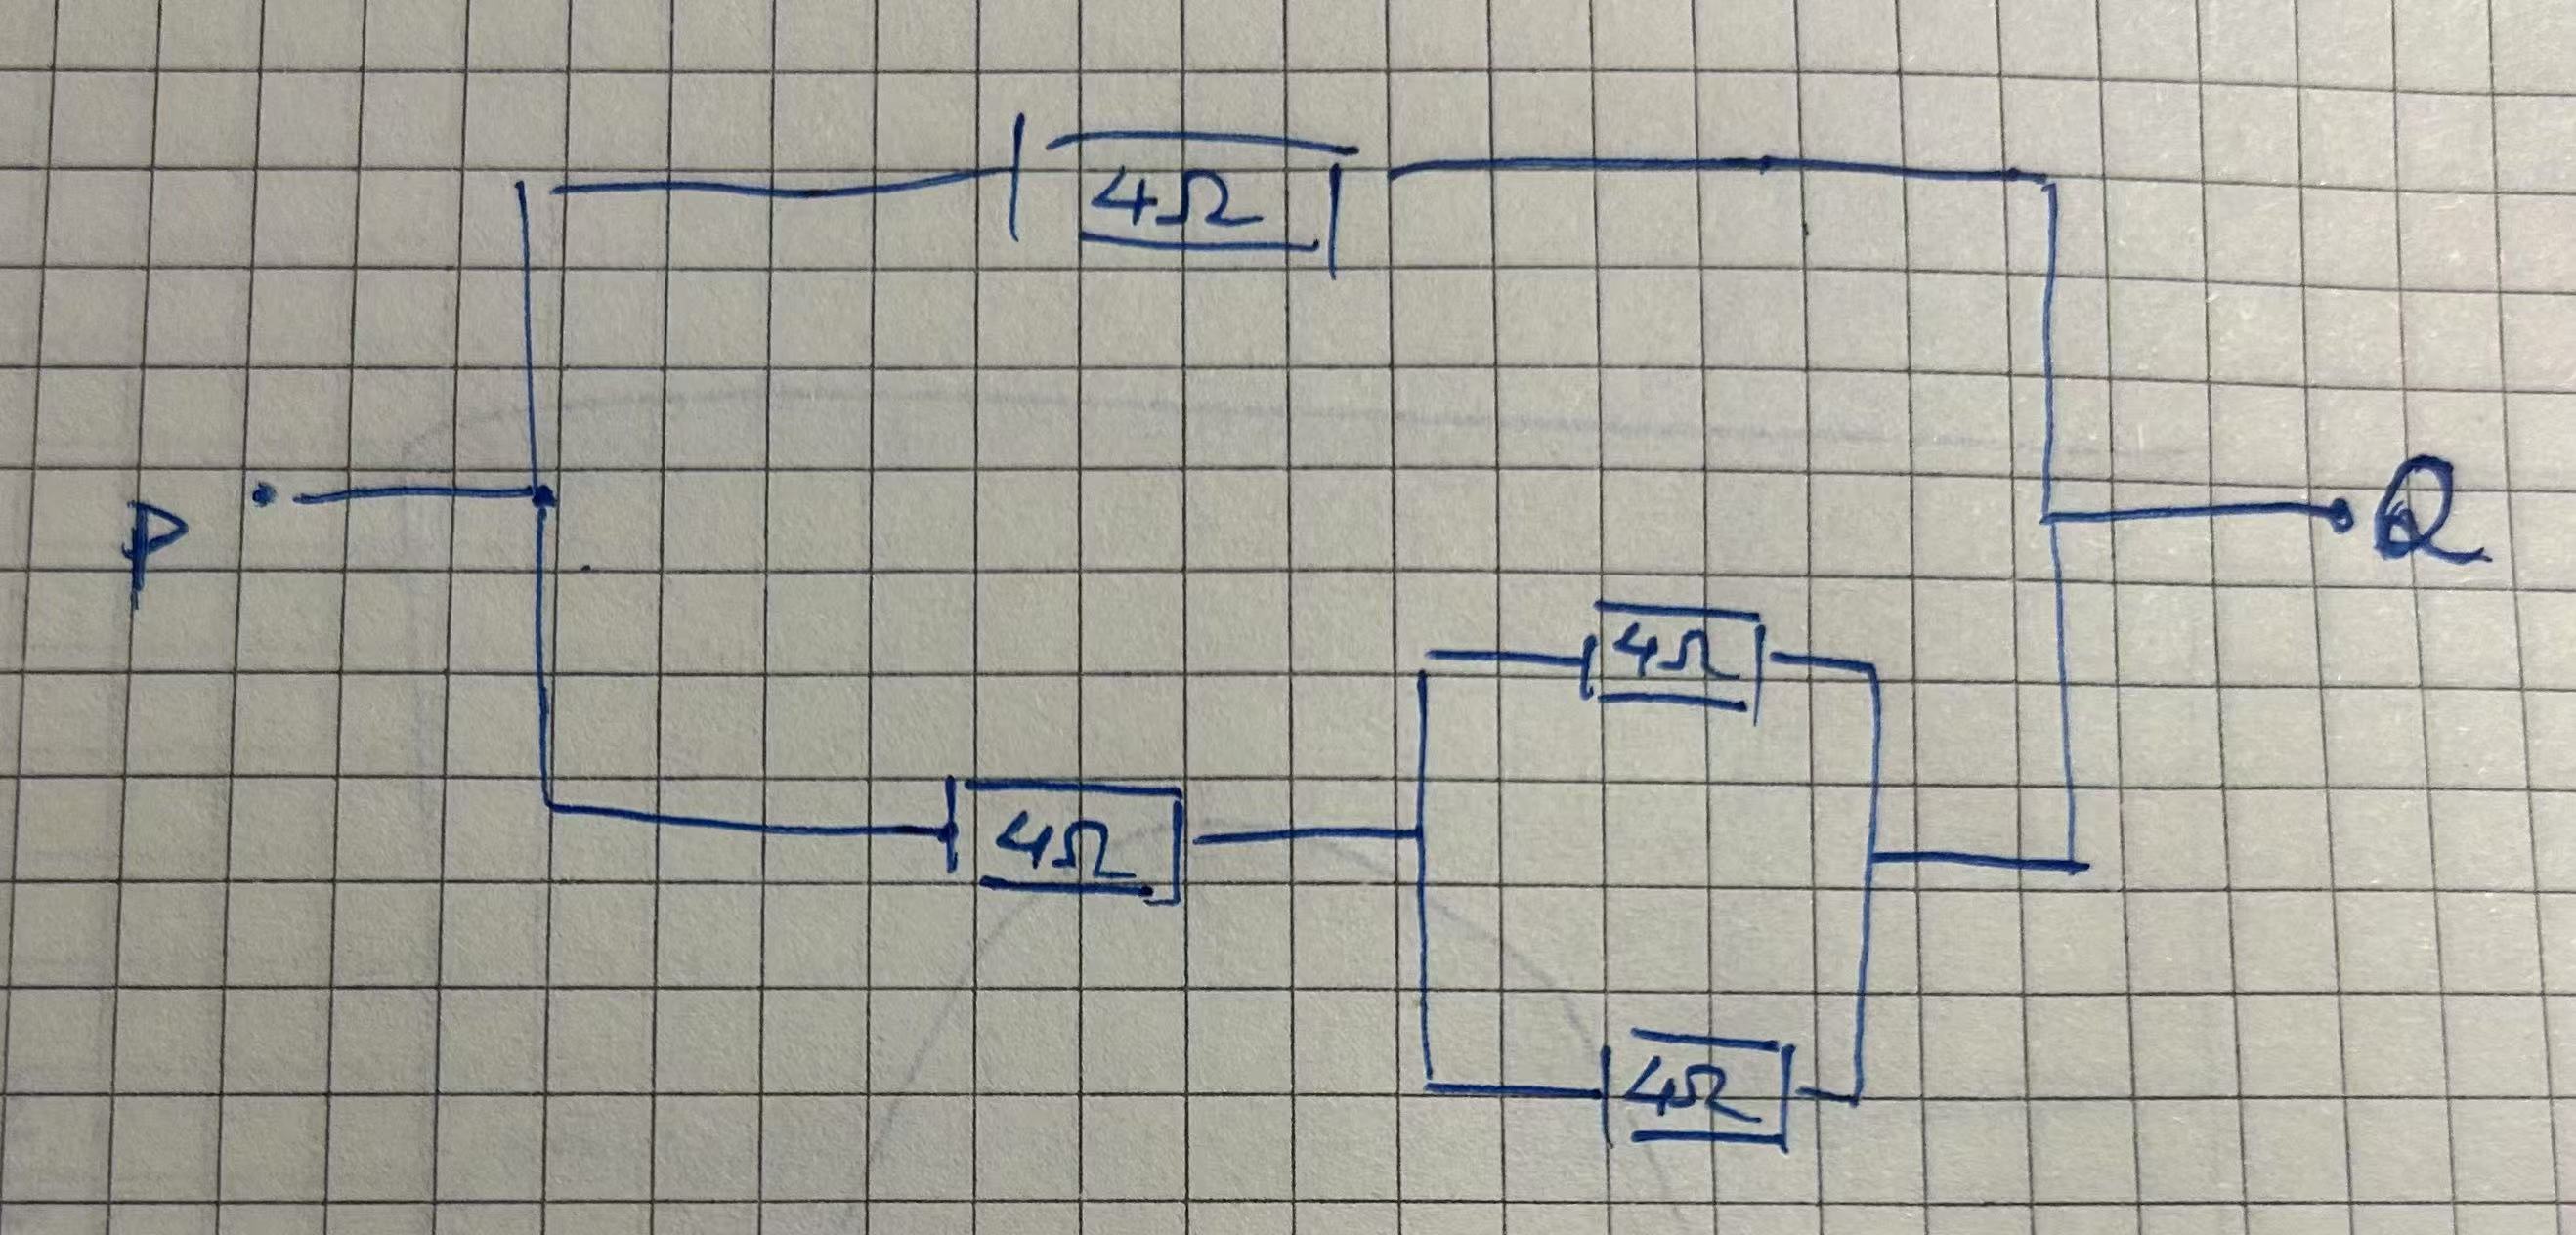 4Ω
P
Q
4Ω
4Ω
4Ω